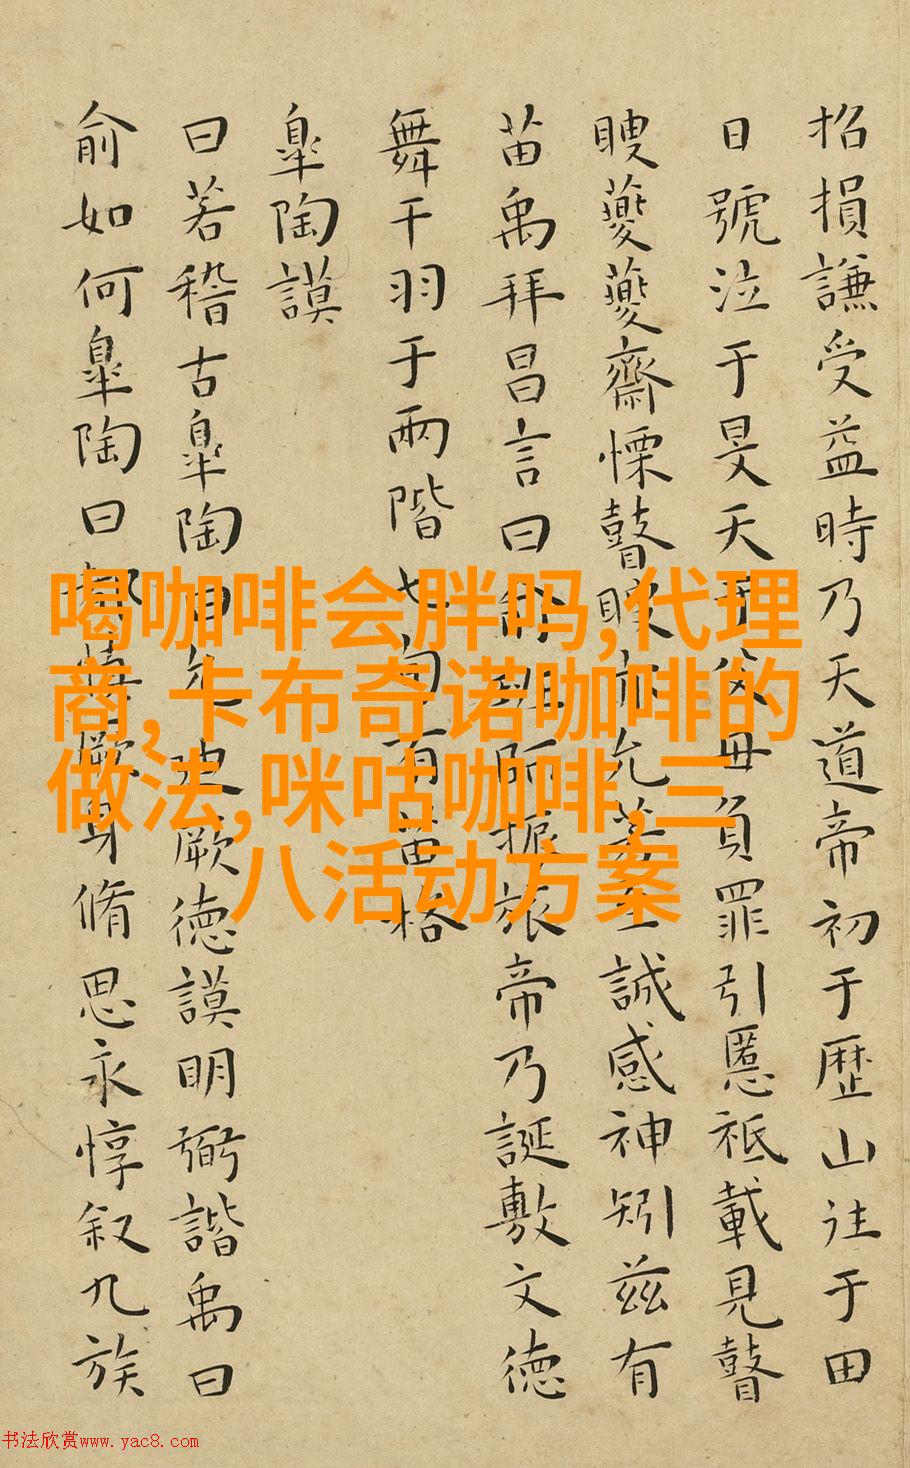 招損謙受益時乃天道帝初于歴山往于田
日號泣于旻天于父母負罪引慝祗載見瞽
瞍夔夔齋慄瞽瞍亦允若至誠感神矧兹有
苗禹拜昌言曰俞班師振旅帝乃誕敷文徳
舞干羽于兩階七旬有苗格
皐陶謨
曰若稽古皐陶曰允迪厥徳謨明弼諧禹曰
俞如何皐陶曰都慎厥身脩思永惇叙九族
喝咖啡会胖吗,代理
商,卡布奇诺咖啡的
做法,咪咕咖啡,三
八活动方案
书法欣赏www.yac8.com